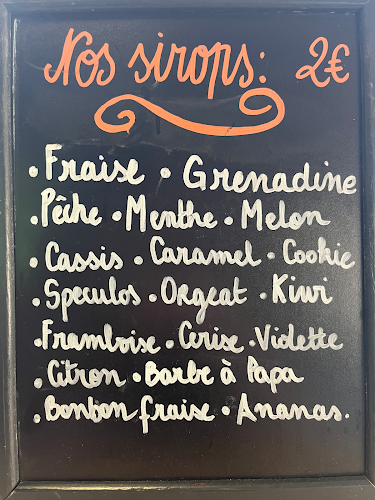 Nos sirops: 2€
• Fraise • Grenadine
• Pêche • Menthe • Melon
• Cassis • Caramel • Cookie
• Speculos • Orgeat • Kiwi
• Framboise • Cerise • Violette
• Citron • Barbe à Papa
• Bonbon fraise • Ananas.